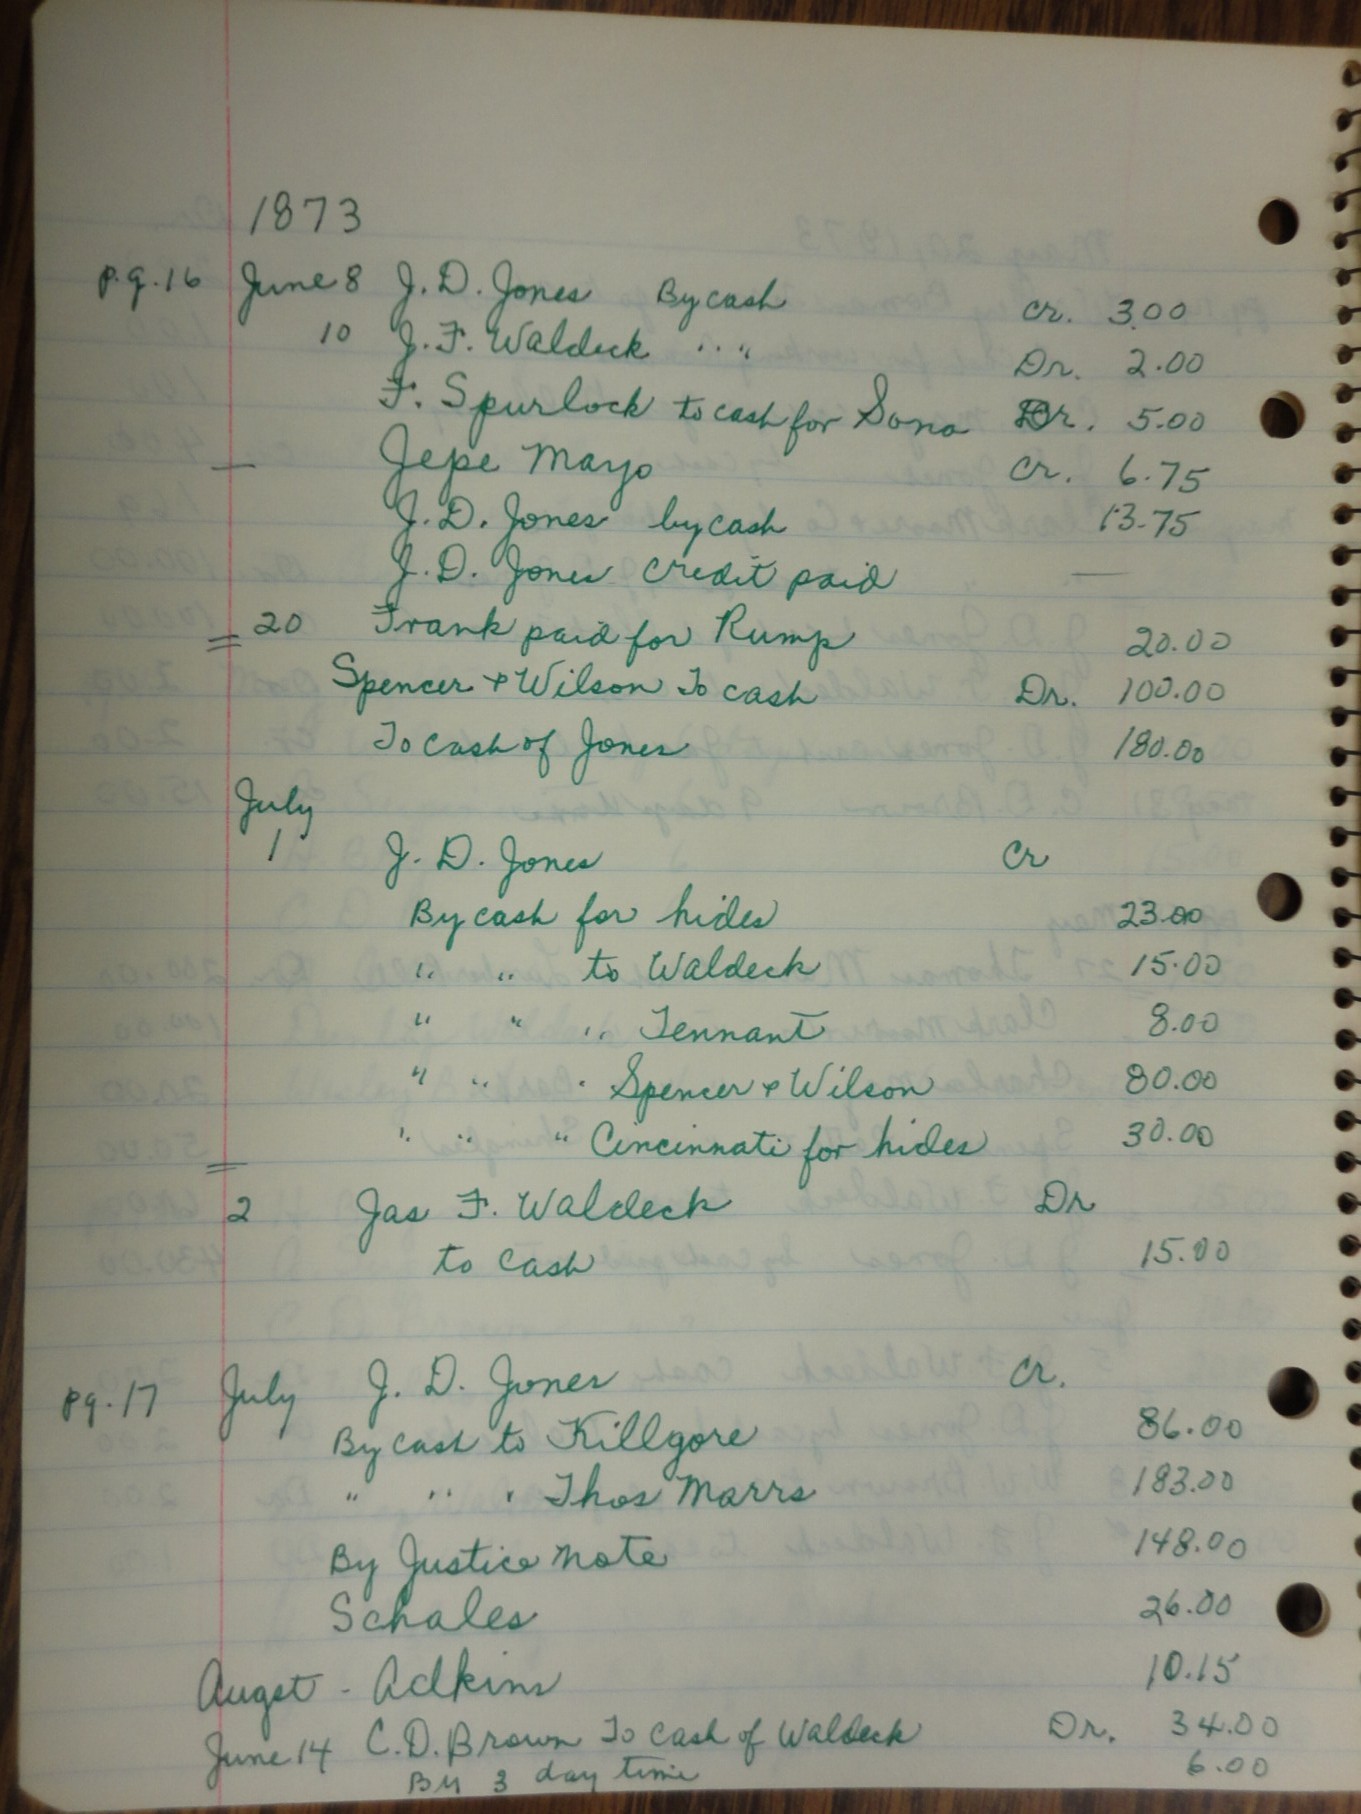 1873
p.g. 16 June 8 J. D. Jones By cash cr. 3.00
10 J. F. Waldeck " " Dr. 2.00
F. Spurlock to cash for Sona Dr. 5.00
— Jepe Mayo cr. 6.75
J. D. Jones by cash 13.75
J. D. Jones credit paid —
= 20 Frank paid for Rump 20.00
Spencer + Wilson To cash Dr. 100.00
To cash of Jones 180.00
July
1 J. D. Jones Cr
By cash for hides 23.00
" " to Waldeck 15.00
" " " Tennant 8.00
" " " Spencer + Wilson 80.00
" " " Cincinnati for hides 30.00
=
2 Jas F. Waldeck Dr
to cash 15.00
pg. 17 July J. D. Jones Cr.
By cash to Killgore 86.00
" " " Thos Marrs 183.00
By Justice note 148.00
Schales 26.00
Augst - Adkins 10.15
June 14 C. D. Brown To cash of Waldeck Dr. 34.00
By 3 day time 6.00